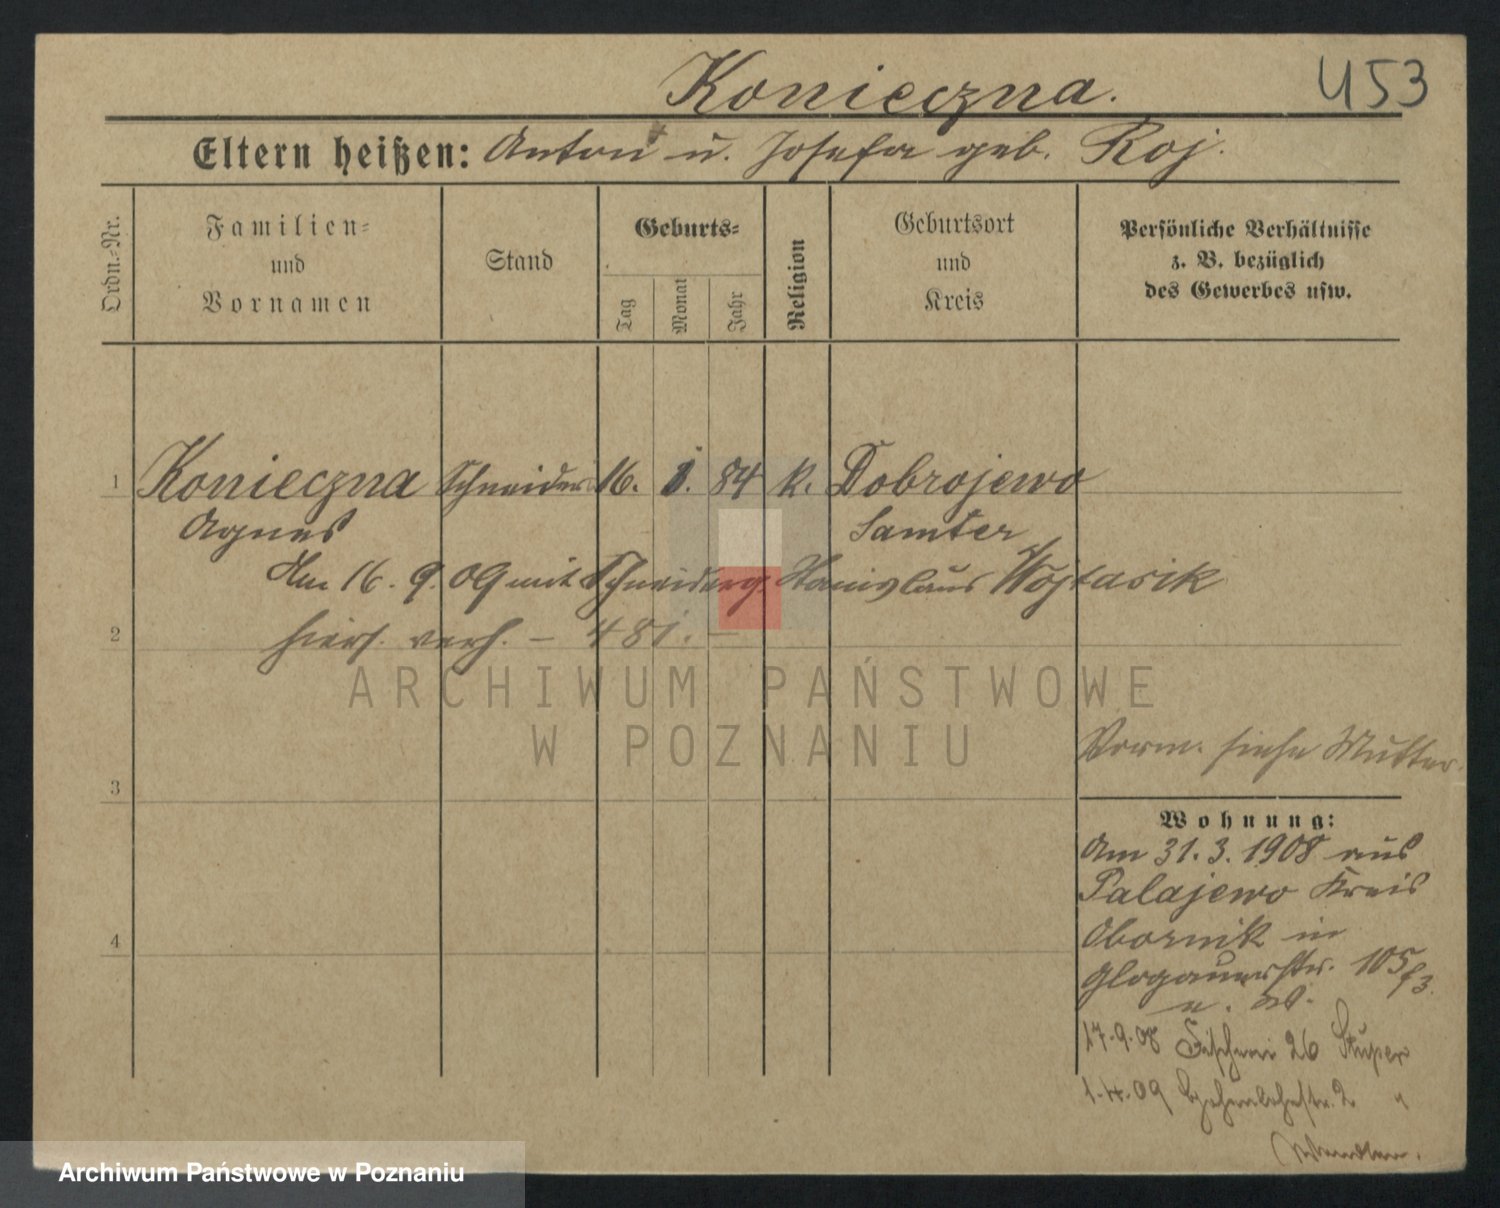 Konieczna.
453
Eltern heißen: Anton u. Josefa geb. Roj.
Ordn.-Nr.
Familien-
und
Vornamen
Stand
Geburts-
Tag
Monat
Jahr
Religion
Geburtsort
und
Kreis
Persönliche Verhältnisse
z. B. bezüglich
des Gewerbes usw.
1 Konieczna Schneiderin 16. 1. 84 k. Dobrojewo
Agnes Samter
Am 16. 9. 09 mit Schneiderg. Stanislaus Wojtasik
hiers. verh. – 481. –
2
ARCHIWUM PAŃSTWOWE
W POZNANIU
Vorm. siehe Mutter.
3
Wohnung:
Am 31. 3. 1908 aus
Palajewo Kreis
Obornik in
4
Glogauerstr. 105
17.9.08 Fischerei 26
1.4.09 2 "
Archiwum Państwowe w Poznaniu